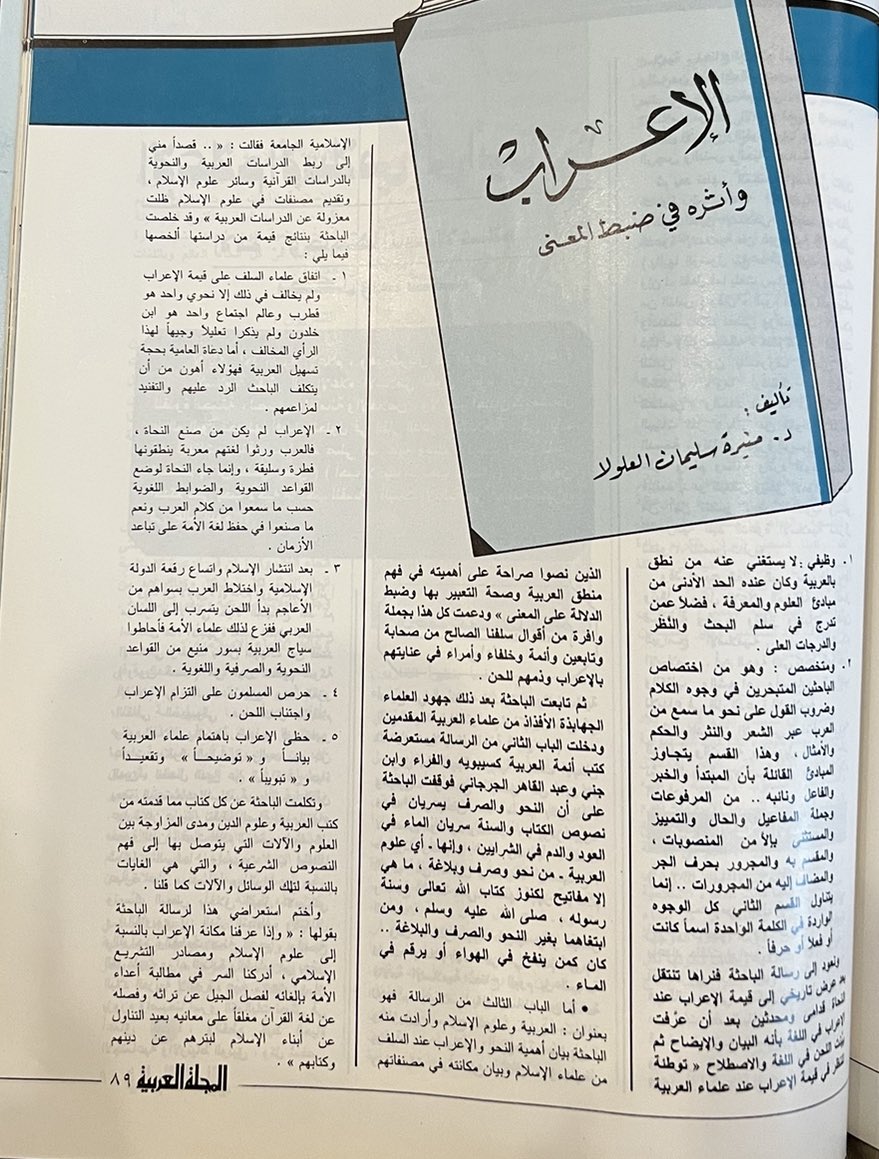 الإعراب
وأثره في ضبط المعنى
تأليف :
د. منيرة سليمان العلولا
١ . وظيفي : لا يستغني عنه من نطق
بالعربية وكان عنده الحد الأدنى من
مبادئ العلوم والمعرفة ، فضلاً عمن
تدرج في سلم البحث والنّظر
والدرجات العلى .
٢ . ومتخصص : وهو من اختصاص
الباحثين المتبحرين في وجوه الكلام
وضروب القول على نحو ما سمع من
العرب عبر الشعر والنثر والحكم
والأمثال ، وهذا القسم يتجاوز
المبادئ القائلة بأن المبتدأ والخبر
والفاعل ونائبه .. من المرفوعات
وجملة المفاعيل والحال والتمييز
والمستثنى بإلا من المنصوبات ،
والمقسم به والمجرور بحرف الجر
والمضاف إليه من المجرورات .. إنما
يتناول القسم الثاني كل الوجوه
الواردة في الكلمة الواحدة اسماً كانت
أو فعلاً أو حرفاً .
ونعود إلى رسالة الباحثة فنراها تنتقل
بعد عرض تاريخي إلى قيمة الإعراب عند
النحاة قدامى ومحدثين بعد أن عرّفت
الإعراب في اللغة بأنه البيان والإيضاح ثم
بينت اللحن في اللغة والاصطلاح « توطئة
للنظر في قيمة الإعراب عند علماء العربية
الذين نصوا صراحة على أهميته في فهم
منطق العربية وصحة التعبير بها وضبط
الدلالة على المعنى » ودعمت كل هذا بجملة
وافرة من أقوال سلفنا الصالح من صحابة
وتابعين وأئمة وخلفاء وأمراء في عنايتهم
بالإعراب وذمهم للحن .
ثم تابعت الباحثة بعد ذلك جهود العلماء
الجهابذة الأفذاذ من علماء العربية المقدمين
ودخلت الباب الثاني من الرسالة مستعرضة
كتب أئمة العربية كسيبويه والفراء وابن
جني وعبد القاهر الجرجاني فوقفت الباحثة
على أن النحو والصرف يسريان في
نصوص الكتاب والسنة سريان الماء في
العود والدم في الشرايين ، وإنها ـ أي علوم
العربية ـ من نحو وصرف وبلاغة ، ما هي
إلا مفاتيح لكنوز كتاب الله تعالى وسنة
رسوله ، صلى الله عليه وسلم ، ومن
ابتغاهما بغير النحو والصرف والبلاغة ..
كان كمن ينفخ في الهواء أو يرقم في
الماء .
● أما الباب الثالث من الرسالة فهو
بعنوان : العربية وعلوم الإسلام وأرادت منه
الباحثة بيان أهمية النحو والإعراب عند السلف
من علماء الإسلام وبيان مكانته في مصنفاتهم
الإسلامية الجامعة فقالت : « .. قصداً مني
إلى ربط الدراسات العربية والنحوية
بالدراسات القرآنية وسائر علوم الإسلام ،
وتقديم مصنفات في علوم الإسلام ظلت
معزولة عن الدراسات العربية » وقد خلصت
الباحثة بنتائج قيمة من دراستها ألخصها
فيما يلي :
١ ـ اتفاق علماء السلف على قيمة الإعراب
ولم يخالف في ذلك إلا نحوي واحد هو
قطرب وعالم اجتماع واحد هو ابن
خلدون ولم يذكرا تعليلاً وجيهاً لهذا
الرأي المخالف ، أما دعاة العامية بحجة
تسهيل العربية فهؤلاء أهون من أن
يتكلف الباحث الرد عليهم والتفنيد
لمزاعمهم .
٢ ـ الإعراب لم يكن من صنع النحاة ،
فالعرب ورثوا لغتهم معربة ينطقونها
فطرة وسليقة ، وإنما جاء النحاة لوضع
القواعد النحوية والضوابط اللغوية
حسب ما سمعوا من كلام العرب ونعم
ما صنعوا في حفظ لغة الأمة على تباعد
الأزمان .
٣ ـ بعد انتشار الإسلام واتساع رقعة الدولة
الإسلامية واختلاط العرب بسواهم من
الأعاجم بدأ اللحن يتسرب إلى اللسان
العربي ففزع لذلك علماء الأمة فأحاطوا
سياج العربية بسور منيع من القواعد
النحوية والصرفية واللغوية .
٤ ـ حرص المسلمون على التزام الإعراب
واجتناب اللحن .
٥ ـ حظى الإعراب باهتمام علماء العربية
بياناً و « توضيحاً » وتقعيداً
و « تبويباً » .
وتكلمت الباحثة عن كل كتاب مما قدمته من
كتب العربية وعلوم الدين ومدى المزاوجة بين
العلوم والآلات التي يتوصل بها إلى فهم
النصوص الشرعية ، والتي هي الغايات
بالنسبة لتلك الوسائل والآلات كما قلنا .
وأختم استعراضي هذا لرسالة الباحثة
بقولها : « وإذا عرفنا مكانة الإعراب بالنسبة
إلى علوم الإسلام ومصادر التشريع
الإسلامي ، أدركنا السر في مطالبة أعداء
الأمة بإلغائه لفصل الجيل عن تراثه وفصله
عن لغة القرآن مغلقاً على معانيه بعيد التناول
عن أبناء الإسلام لبترهم عن دينهم
وكتابهم » .
المجلة العربية ٨٩